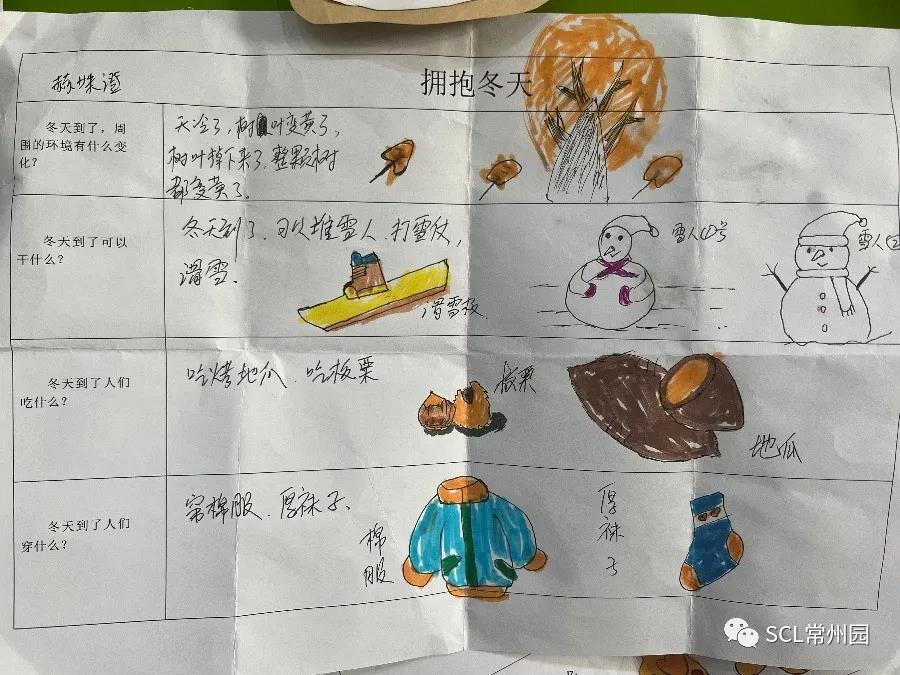 拥抱冬天
冬天到了，周
围的环境有什么变
化？
天冷了，树叶变黄了，
树叶掉下来了，整颗树
都变黄了。
冬天到了可以
干什么？
冬天到了，可以堆雪人、打雪仗，
滑雪、
滑雪板
雪人①号
雪人②
冬天到了人们
吃什么？
吃烤地瓜、吃板栗
板栗
地瓜
冬天到了人们
穿什么？
穿棉服、厚袜子、
棉
服
厚
袜
子
SCL常州园